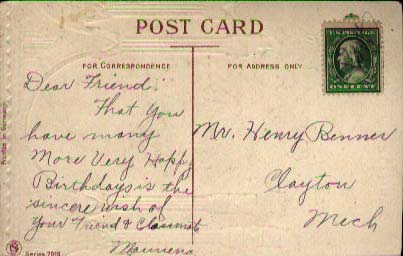 POST CARD
FOR CORRESPONDENCE
FOR ADDRESS ONLY
U.S. POSTAGE
ONE CENT
Dear Friend:
That you
have many
More Very Happ
Birthdays is the
sincere wish of
your Friend & Classmate
Mr. Henry Benner
Clayton
Mech
Printed in Germany
Series 701